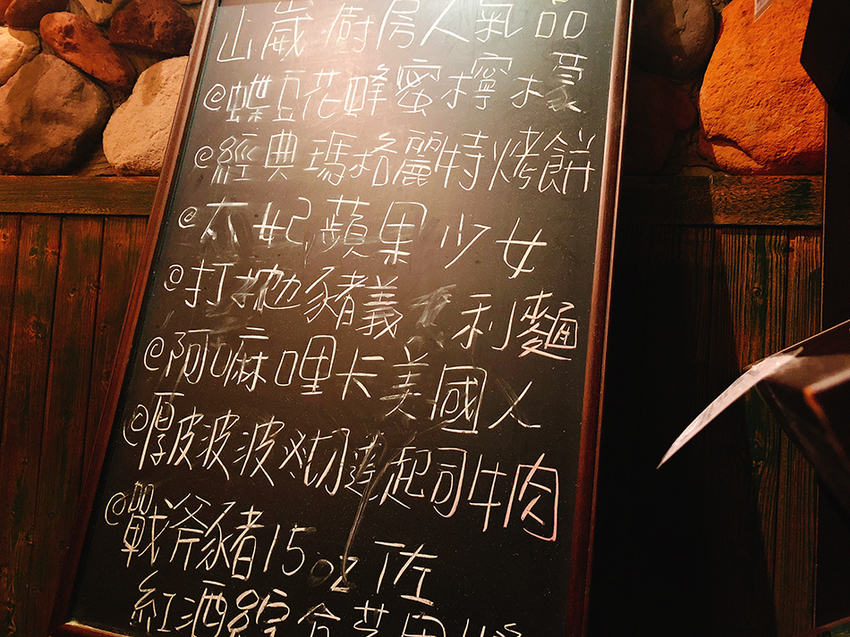 山崴廚房人氣品
@蝶豆花蜂蜜檸檬
@經典瑪格麗特烤餅
@太妃蘋果少女
@打拋豬義利麵
@阿嘛哩卡美國人
@厚皮波波起司牛肉
@戰斧豬15oz佐
紅酒綜合